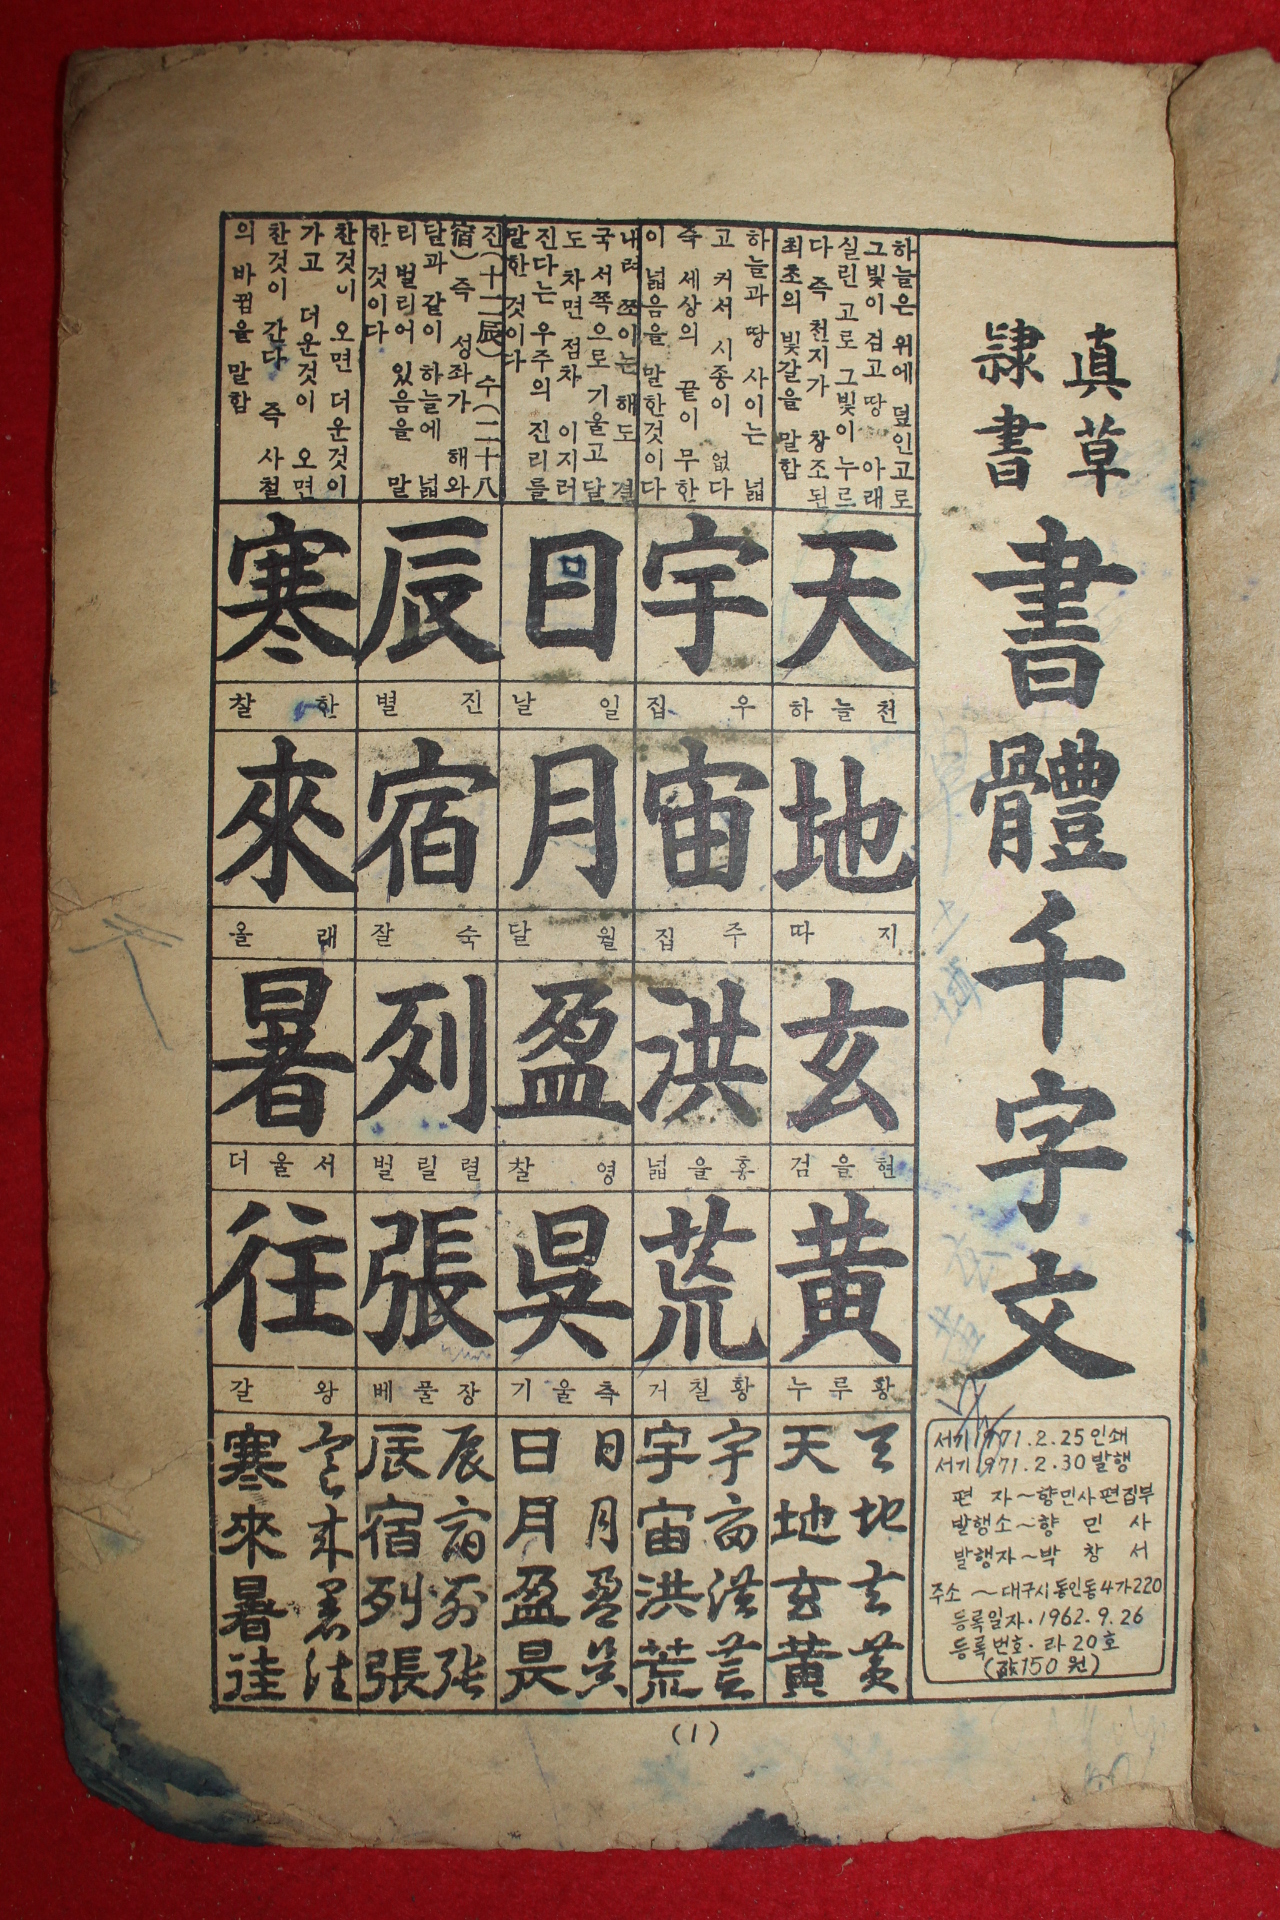 眞草
隸書
書體千字文
서기 1971.2.25 인쇄
서기 1971.2.30 발행
편 자~향민사편집부
발행소~향 민 사
발행자~박 창 서
주소 ~대구시동인동4가220
등록일자·1962.9.26
등록번호·라20호
(값150원)
하늘은 위에 덮인고로
그빛이 검고 땅 아래
실린 고로 그빛이 누르
다 즉 천지가 창조된
최초의 빛갈을 말함
天
하늘천
地
따 지
玄
검을현
黄
누루황
天地玄黃
天地玄黄
하늘과 땅 사이는 넓
고 커서 시종이 없다
즉 세상의 끝이 무한
이 넓음을 말한것이다
宇
집 우
宙
집 주
洪
넓을홍
荒
거칠황
宇宙洪荒
宇宙洪荒
내려 쪼이는 해도 결
국 서쪽으로 기울고 달
도 차면 점차 이지러
진다는 우주의 진리를
말한 것이다
日
날 일
月
달 월
盈
찰 영
昃
기울측
日月盈昃
日月盈昃
진(十二辰)수(二十八
宿)즉 성좌가 해와
달과 같이 하늘에 넓
리 벌리어 있음을 말
한 것이다
辰
별 진
宿
잘 숙
列
벌릴렬
張
베풀장
辰宿列张
辰宿列張
찬것이 오면 더운것이
가고 더운것이 오면
찬것이 간다 즉 사철
의 바뀜을 말함
寒
찰 한
來
올 래
暑
더울서
往
갈 왕
寒来暑往
寒來暑往
(1)